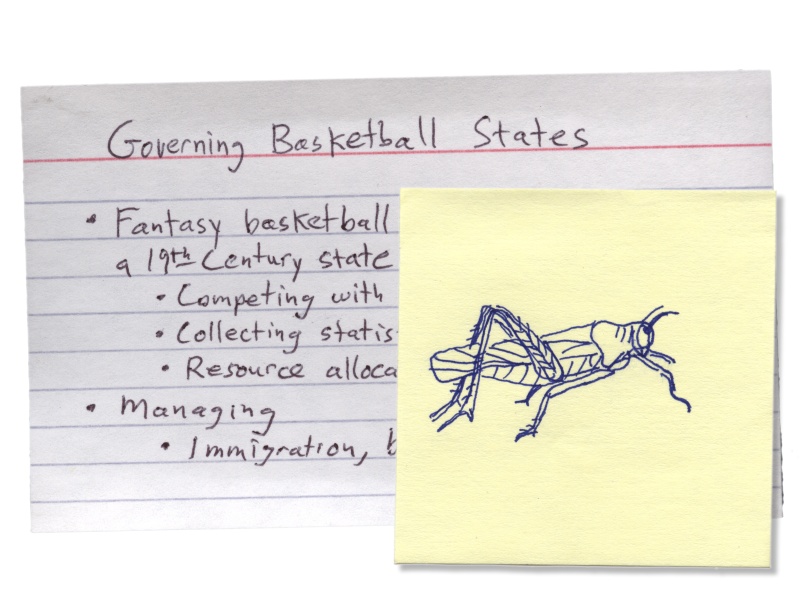 Governing Basketball States
• Fantasy basketball
a 19th Century state
• Competing with
• Collecting statis
• Resource alloca
• Managing
• Immigration, b